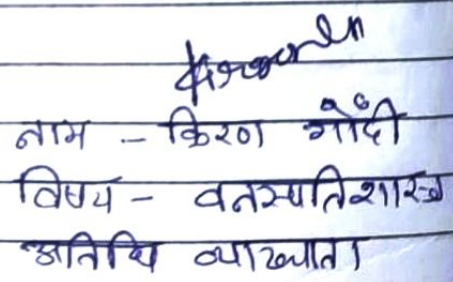 नाम - किरण गोंदी
विषय - वनस्पतिशास्त्र
अतिथि व्याख्याता